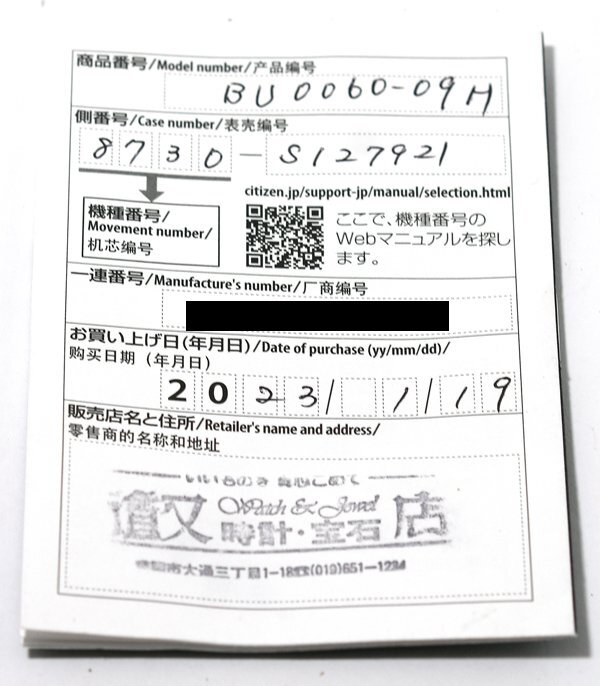 商品番号/Model number/产品编号
BU0060-09H
側番号/Case number/表壳编号
8730-S127921
citizen.jp/support-jp/manual/selection.html
機種番号/
Movement number/
机芯编号
ここで、機種番号の
Webマニュアルを探し
ます。
一連番号/Manufacture's number/厂商编号
お買い上げ日(年月日)/Date of purchase (yy/mm/dd)/
购买日期（年月日）
2023/1/19
販売店名と住所/Retailer's name and address/
零售商的名称和地址
いいものを 真心こめて
道又 Watch & Jewel 店
時計・宝石
市大通三丁目1-18 ☎(019)651-1234